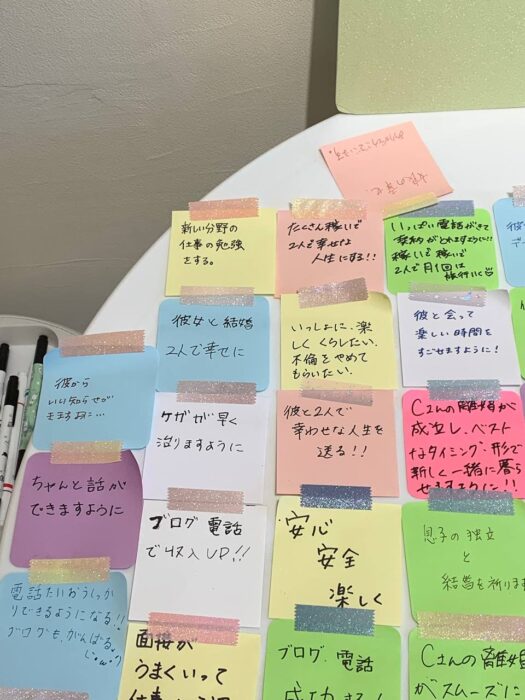 新しい分野の
仕事の勉強
をする。
たくさん稼いで
2人で幸せな
人生にする!!
いっぱい電話がきて
契約がとれますように!!
稼いで稼いで
2人で月1回は
旅行いく
彼女と結婚
2人で幸せに
いっしょに、楽
しくくらしたい。
不倫をやめて
もらいたい。
彼と会って
楽しい時間を
すごせますように!
彼から
いい知らせが
きますように…
ケガが早く
治りますように
彼と2人で
幸わせな人生を
送る!!
Cさんの離婚が
成立し、ベスト
なタイミング・形で
新しく一緒に暮ら
せますように!!
ちゃんと話が
できますように
ブログ電話
で収入UP!!
安心
安全
楽しく
息子の独立
と
結婚を祈ります
電話たいおうしっか
りできるようになる!!
ブログも、がんばる。
面接が
うまくいって
ブログ、電話
成功する
Cさんの離婚
がスムーズに